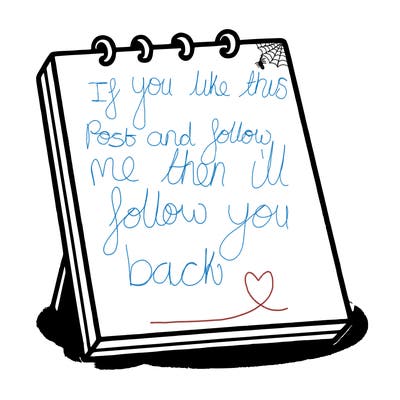 If you like this
Post and follow
me then i'll
follow you
back